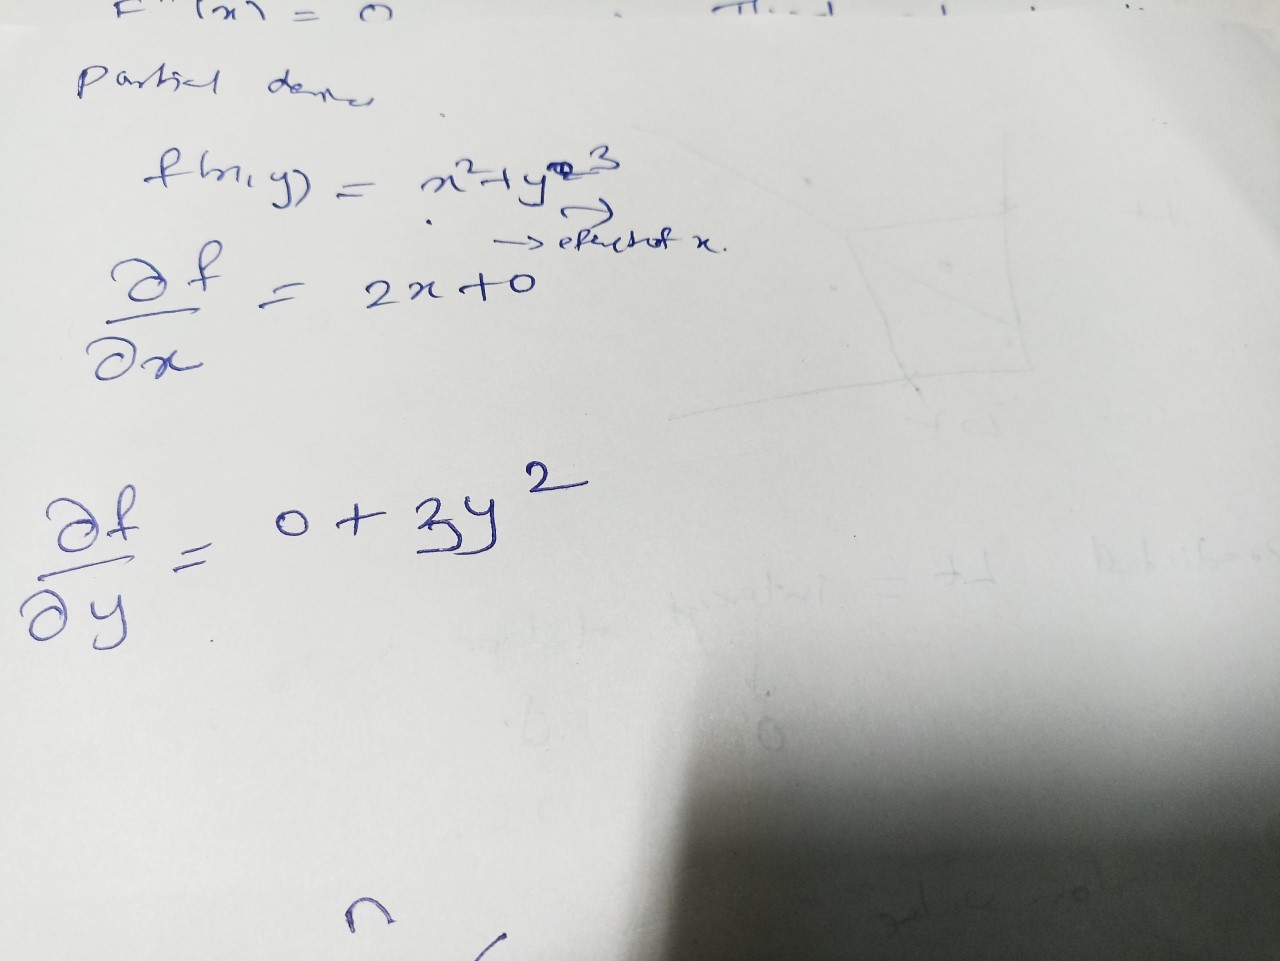 (x) = 0
Partial
f(x, y) = x²+y³
→ effect of x.
∂f/∂x = 2x+0
∂f/∂y = 0 + 3y²